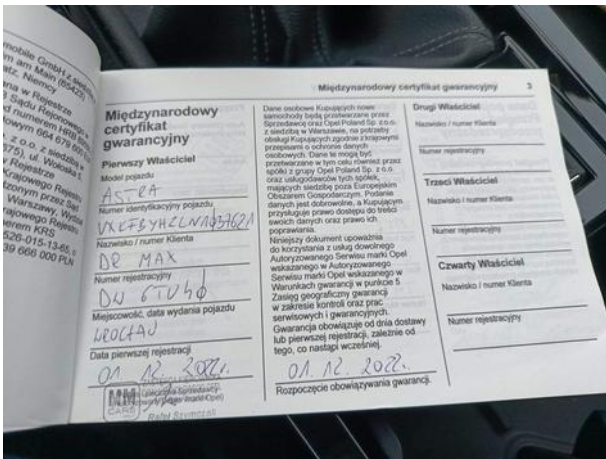 mobile GmbH z siedzibą
am Main (65423)
atz, Niemcy
ana w Rejestrze
Sądu Rejonowego w
d numerem HRB
wym 664 679
z o.o. z siedzibą w
575), ul. Wołoska 5,
Rejestrze
Krajowego Rejestru
dzonym przez Sąd
Warszawy, Wydział
rajowego Rejestru
merem KRS
526-015-13-65, o
39 666 000 PLN
Międzynarodowy certyfikat gwarancyjny 3
Międzynarodowy
certyfikat
gwarancyjny
Pierwszy Właściciel
Model pojazdu
ASTRA
Numer identyfikacyjny pojazdu
Nazwisko / numer Klienta
DR MAX
Numer rejestracyjny
Miejscowość, data wydania pojazdu
WROCŁAW
Data pierwszej rejestracji
01. 12. 2022r.
MM
CARS
Rafał Szymczak
Dane osobowe Kupujących nowe
samochody będą przetwarzane przez
Sprzedawcę oraz Opel Poland Sp. z o.o.
z siedzibą w Warszawie, na potrzeby
obsługi Kupujących zgodnie z krajowymi
przepisami o ochronie danych
osobowych. Dane te mogą być
przetwarzane w tym celu również przez
spółki z grupy Opel Poland Sp. z o.o.
oraz usługodawców tych spółek,
mających siedzibę poza Europejskim
Obszarem Gospodarczym. Podanie
danych jest dobrowolne, a Kupującym
przysługuje prawo dostępu do treści
swoich danych oraz prawo ich
poprawiania.
Niniejszy dokument upoważnia
do korzystania z usług dowolnego
Autoryzowanego Serwisu marki Opel
wskazanego w Autoryzowanego
Serwisu marki Opel wskazanego w
Warunkach gwarancji w punkcie 5
Zasięg geograficzny gwarancji
w zakresie kontroli oraz prac
serwisowych i gwarancyjnych.
Gwarancja obowiązuje od dnia dostawy
lub pierwszej rejestracji, zależnie od
tego, co nastąpi wcześniej.
01. 12. 2022r.
Rozpoczęcie obowiązywania gwarancji.
Drugi Właściciel
Nazwisko / numer Klienta
Numer rejestracyjny
Trzeci Właściciel
Nazwisko / numer Klienta
Numer rejestracyjny
Czwarty Właściciel
Nazwisko / numer Klienta
Numer rejestracyjny